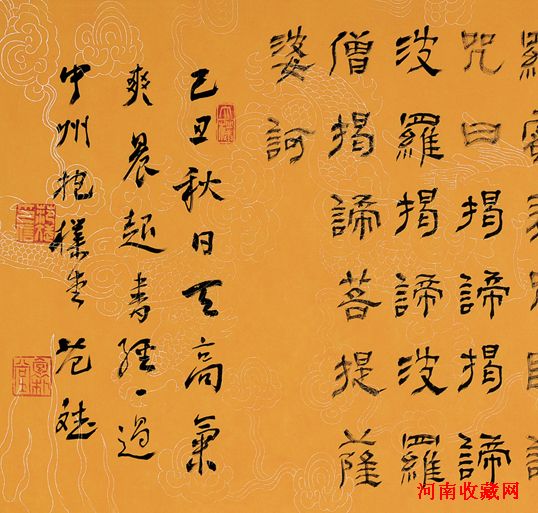 咒曰揭諦揭諦
波羅揭諦波羅
僧揭諦菩提薩
婆訶
己丑秋日天高氣
爽晨起書經一過
中州抱樸堂范斌
河南收藏网